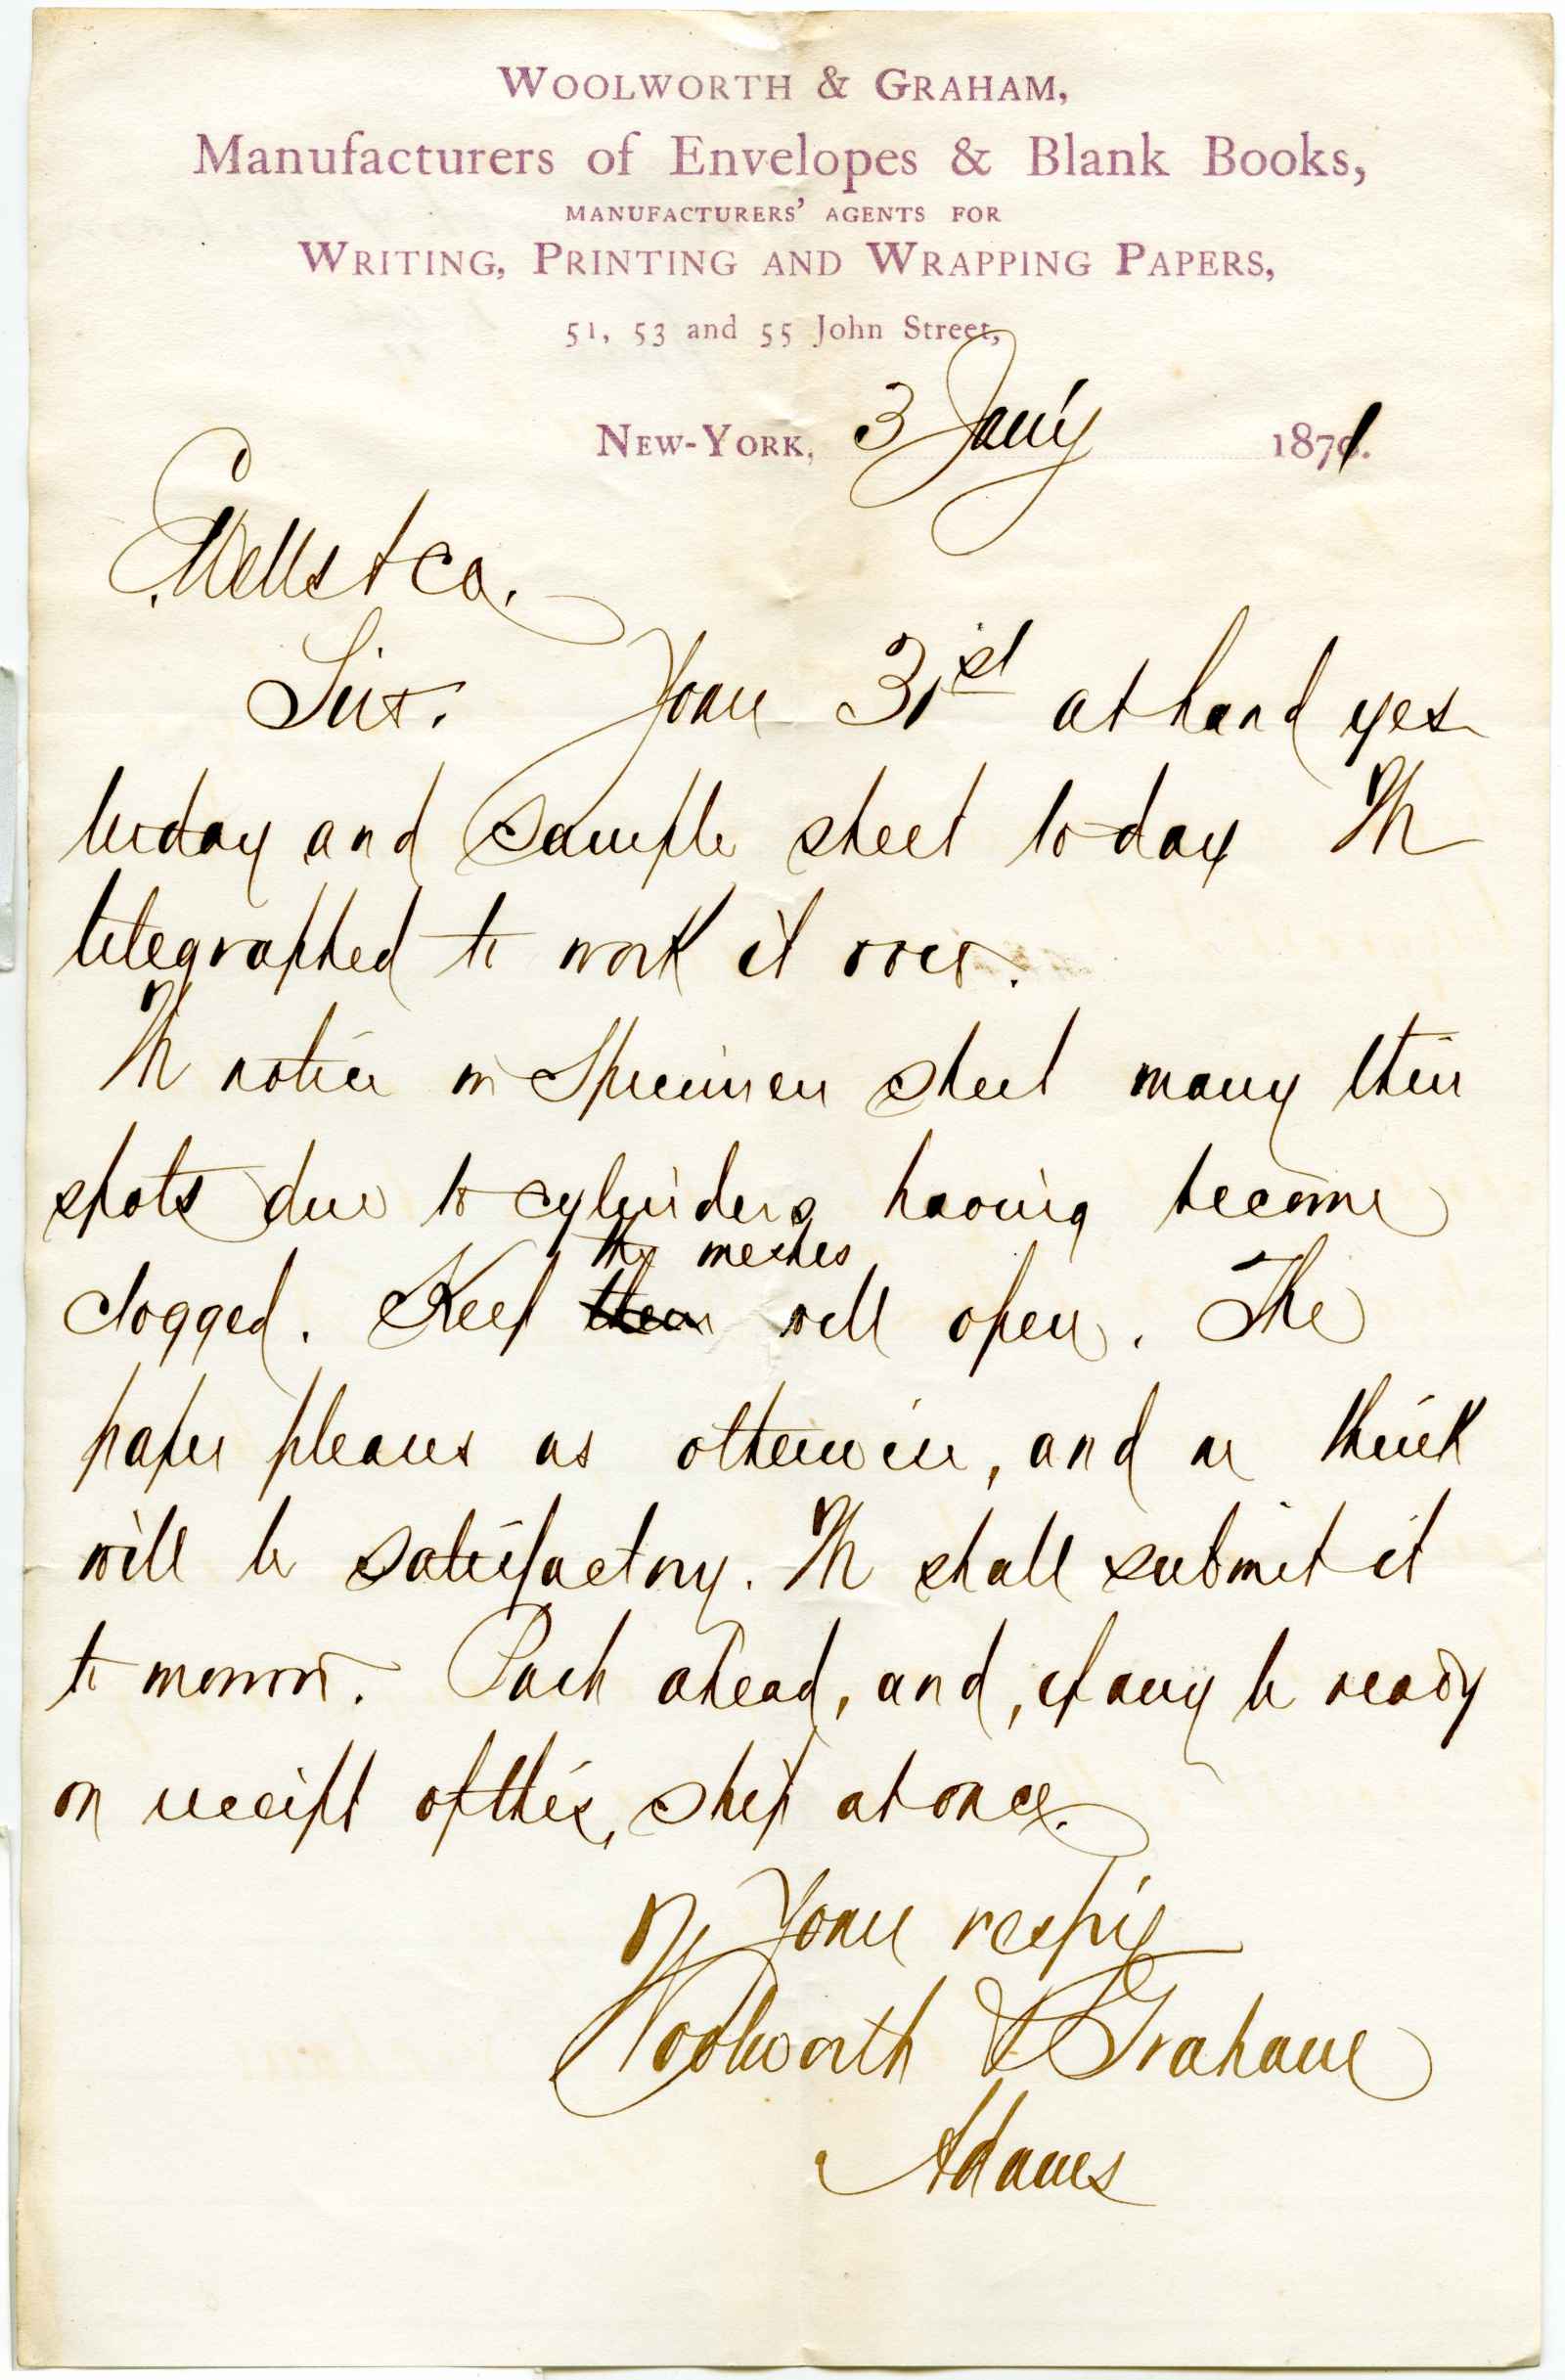 WOOLWORTH & GRAHAM,
Manufacturers of Envelopes & Blank Books,
MANUFACTURERS' AGENTS FOR
WRITING, PRINTING AND WRAPPING PAPERS,
51, 53 and 55 John Street,
NEW-YORK, 3 Jan'y 1871.
C. Wells & Co.
Sirs. Yours 31st at hand yes
terday and sample sheet to day We
telegraphed to work it over.
We notice in Specimen sheet many thin
spots due to cylinders having become
the meshes
clogged. Keep them well open. The
paper pleases us otherwise, and we think
will be satisfactory. We shall submit it
to morrow. Push ahead, and, if any be ready
on receipt of this, ship at once.
Yours resp'y
Woolworth & Graham
Adams